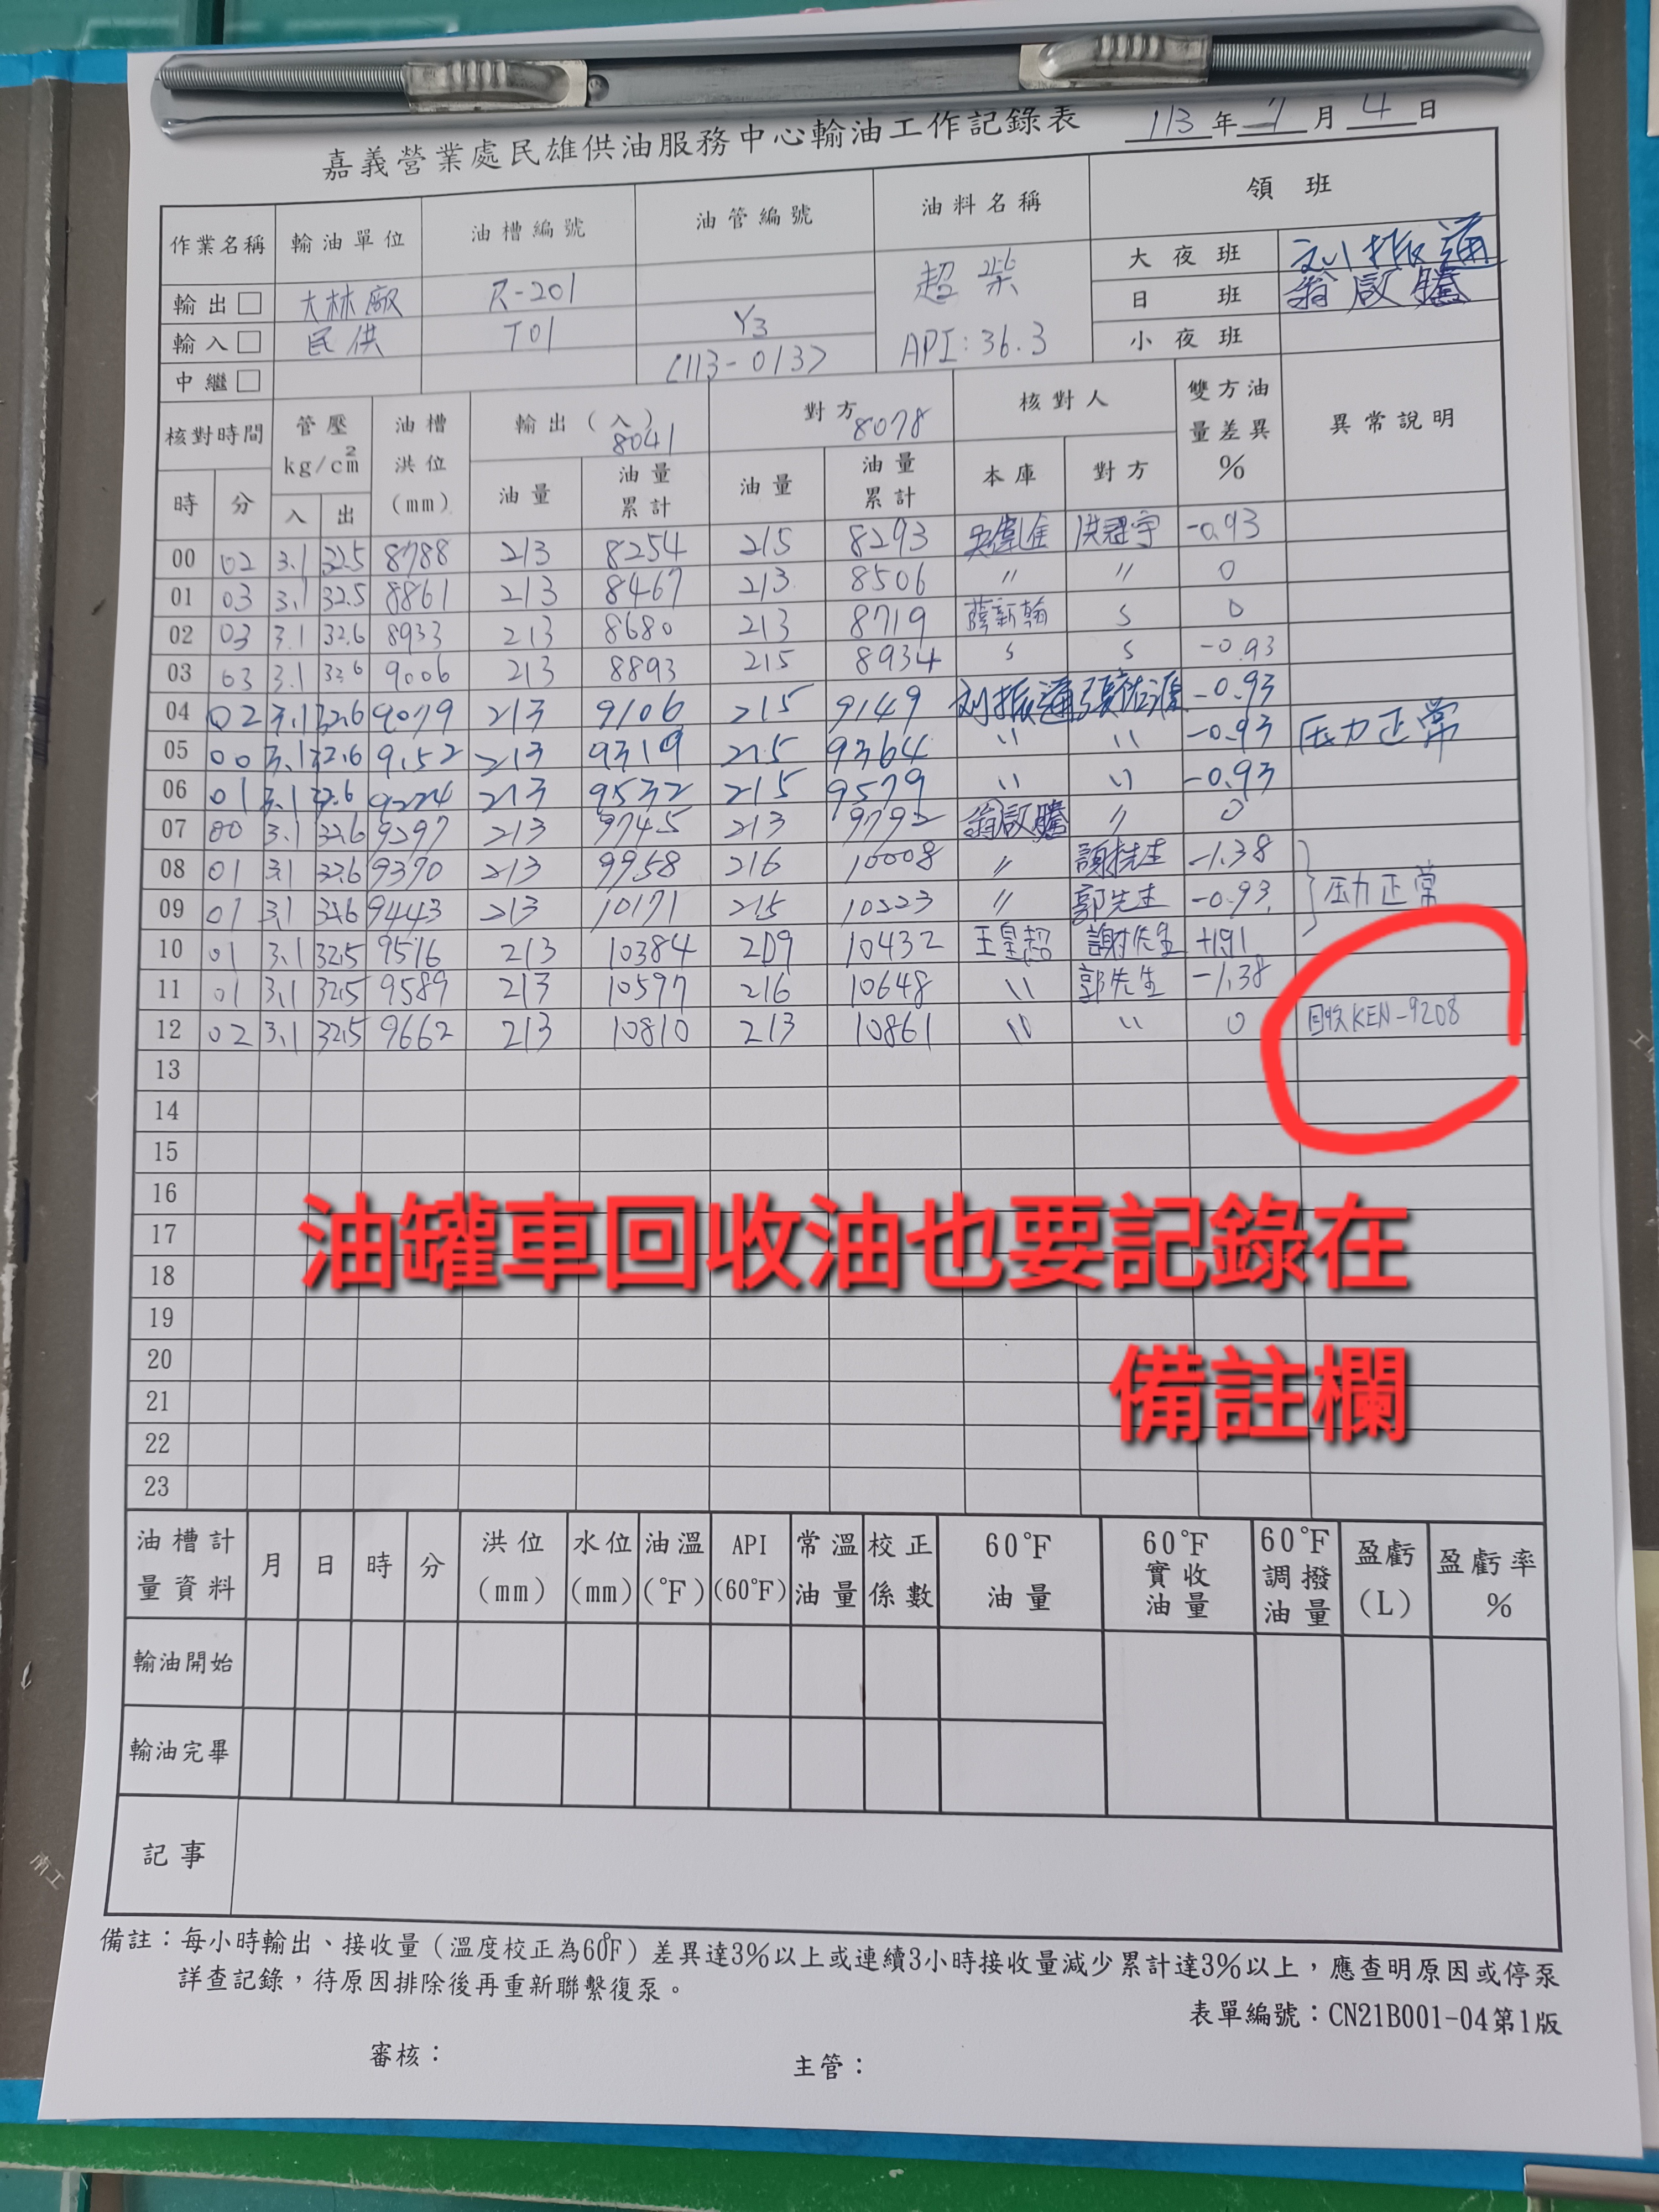 嘉義營業處民雄供油服務中心輸油工作記錄表 113年7月4日
作業名稱 輸油單位 油槽編號 油管編號 油料名稱 領班
輸出□ 大林廠 R-201 超柴 大夜班 刘振通
輸入□ 民供 T01 Y3 API:36.3 日班 翁啟騰
中繼□ (113-013) 小夜班
核對時間 管壓 kg/cm² 油槽洪位(mm) 輸出(入) 8041 對方 8078 核對人 雙方油量差異% 異常說明
時 分 入 出 油量 油量累計 油量 油量累計 本庫 對方
00 02 3.1 32.5 8788 213 8254 215 8293 洪冠宇 -0.93
01 03 3.1 32.5 8861 213 8467 213 8506 〃 〃 0
02 03 3.1 32.6 8933 213 8680 213 8719 薛新翰 s 0
03 03 3.1 32.6 9006 213 8893 215 8934 s s -0.93
04 02 3.1 32.6 9079 213 9106 215 9149 刘振通 -0.93
05 00 3.1 32.6 9152 213 9319 215 9364 〃 〃 -0.93 压力正常
06 01 3.1 32.6 9224 213 9532 215 9579 〃 〃 -0.93
07 00 3.1 32.6 9297 213 9745 213 9792 翁啟騰 〃 0
08 01 3.1 32.6 9370 213 9958 216 10008 〃 謝先生 -1.38
09 01 3.1 32.6 9443 213 10171 215 10223 〃 郭先生 -0.93 压力正常
10 01 3.1 32.5 9516 213 10384 209 10432 王皇超 謝先生 +1.91
11 01 3.1 32.5 9589 213 10597 216 10648 〃 郭先生 -1.38
12 02 3.1 32.5 9662 213 10810 213 10861 〃 〃 0 回收KEN-9208
13
14
15
16
17
油罐車回收油也要記錄在
18
19
20
備註欄
21
22
23
油槽計量資料 月 日 時 分 洪位(mm) 水位(mm) 油溫(°F) API(60°F) 常溫油量 校正係數 60°F油量 60°F實收油量 60°F調撥油量 盈虧(L) 盈虧率%
輸油開始
輸油完畢
記事
備註：每小時輸出、接收量（溫度校正為60°F）差異達3%以上或連續3小時接收量減少累計達3%以上，應查明原因或停泵
詳查記錄，待原因排除後再重新聯繫復泵。
表單編號：CN21B001-04第1版
審核： 主管：